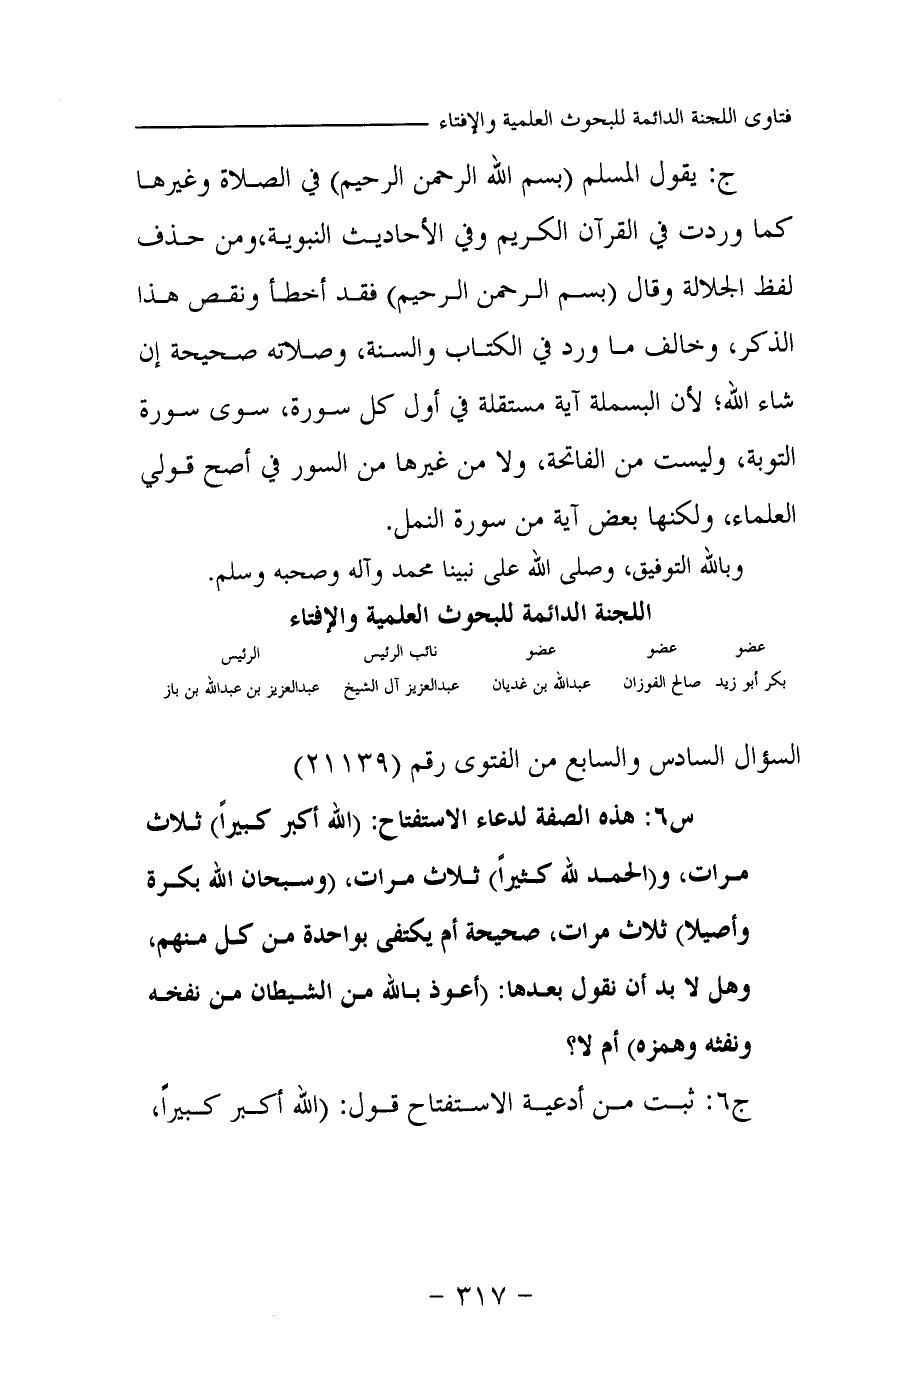 فتاوى اللجنة الدائمة للبحوث العلمية والإفتاء
ج: يقول المسلم (بسم الله الرحمن الرحيم) في الصلاة وغيرها
كما وردت في القرآن الكريم وفي الأحاديث النبوية،ومن حذف
لفظ الجلالة وقال (بسم الرحمن الرحيم) فقد أخطأ ونقص هذا
الذكر، وخالف ما ورد في الكتاب والسنة، وصلاته صحيحة إن
شاء الله؛ لأن البسملة آية مستقلة في أول كل سورة، سوى سورة
التوبة، وليست من الفاتحة، ولا من غيرها من السور في أصح قولي
العلماء، ولكنها بعض آية من سورة النمل.
وبالله التوفيق، وصلى الله على نبينا محمد وآله وصحبه وسلم.
اللجنة الدائمة للبحوث العلمية والإفتاء
عضو عضو عضو نائب الرئيس الرئيس
بكر أبو زيد صالح الفوزان عبدالله بن غديان عبدالعزيز آل الشيخ عبدالعزيز بن عبدالله بن باز
السؤال السادس والسابع من الفتوى رقم (٢١١٣٩)
س٦: هذه الصفة لدعاء الاستفتاح: (الله أكبر كبيراً) ثلاث
مرات، و(الحمد لله كثيراً) ثلاث مرات، (وسبحان الله بكرة
وأصيلا) ثلاث مرات، صحيحة أم يكتفى بواحدة من كل منهم،
وهل لا بد أن نقول بعدها: (أعوذ بالله من الشيطان من نفخه
ونفثه وهمزه) أم لا؟
ج٦: ثبت من أدعية الاستفتاح قول: (الله أكبر كبيراً،
- ٣١٧ -